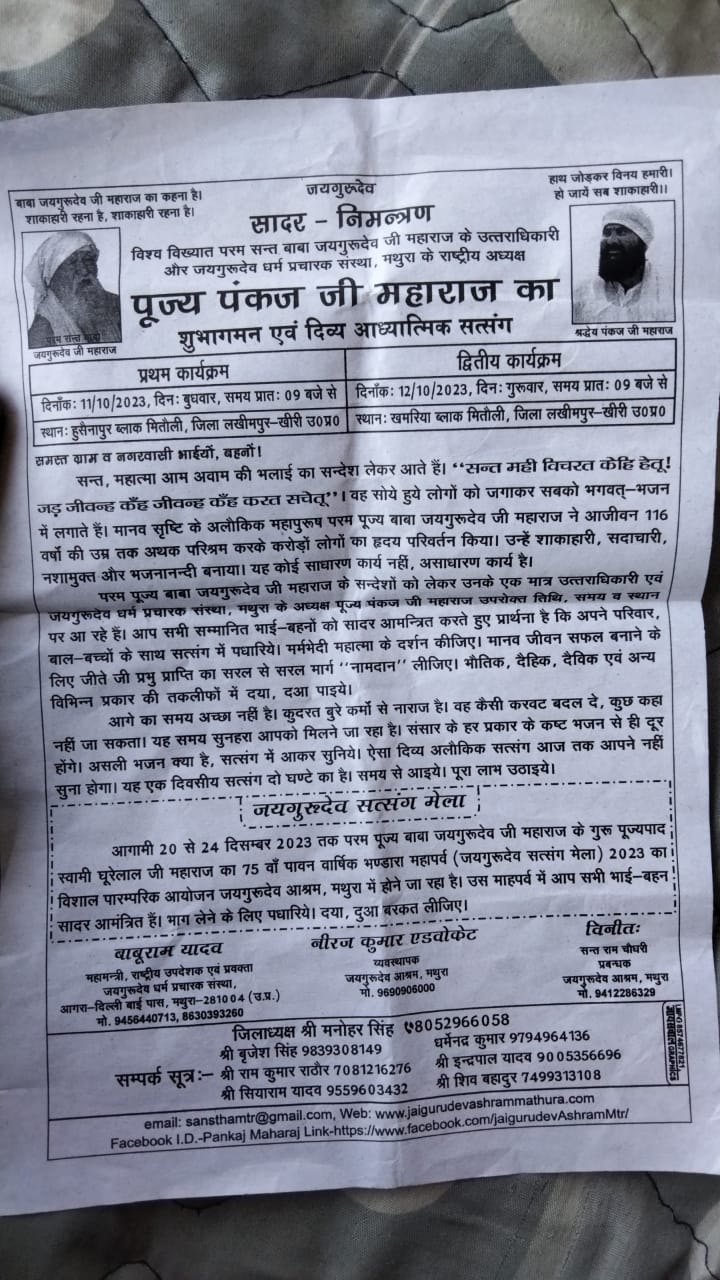 जयगुरूदेव
बाबा जयगुरूदेव जी महाराज का कहना है।
शाकाहारी रहना है, शाकाहारी रहना है।
हाथ जोड़कर विनय हमारी।
हो जायें सब शाकाहारी।।
सादर - निमन्त्रण
विश्व विख्यात परम सन्त बाबा जयगुरूदेव जी महाराज के उत्तराधिकारी
और जयगुरूदेव धर्म प्रचारक संस्था, मथुरा के राष्ट्रीय अध्यक्ष
पूज्य पंकज जी महाराज का
शुभागमन एवं दिव्य आध्यात्मिक सत्संग
परम सन्त बाबा
जयगुरूदेव जी महाराज
श्रद्धेय पंकज जी महाराज
प्रथम कार्यक्रम
दिनाँक: 11/10/2023, दिन: बुधवार, समय प्रात: 09 बजे से
स्थान: हुसैनापुर ब्लाक मितौली, जिला लखीमपुर-खीरी उ०प्र०
द्वितीय कार्यक्रम
दिनाँक: 12/10/2023, दिन: गुरूवार, समय प्रात: 09 बजे से
स्थान: खमरिया ब्लाक मितौली, जिला लखीमपुर-खीरी उ०प्र०
समस्त ग्राम व नगरवासी भाईयों, बहनों!
सन्त, महात्मा आम अवाम की भलाई का सन्देश लेकर आते हैं। "सन्त मही विचरत केहि हेतू!
जड़ जीवन्ह कँह जीवन्ह कँह करत सचेतू"। वह सोये हुये लोगों को जगाकर सबको भगवत्-भजन
में लगाते हैं। मानव सृष्टि के अलौकिक महापुरूष परम पूज्य बाबा जयगुरूदेव जी महाराज ने आजीवन 116
वर्षो की उम्र तक अथक परिश्रम करके करोड़ों लोगों का हृदय परिवर्तन किया। उन्हें शाकाहारी, सदाचारी,
नशामुक्त और भजनानन्दी बनाया। यह कोई साधारण कार्य नहीं, असाधारण कार्य है।
परम पूज्य बाबा जयगुरूदेव जी महाराज के सन्देशों को लेकर उनके एक मात्र उत्तराधिकारी एवं
जयगुरूदेव धर्म प्रचारक संस्था, मथुरा के अध्यक्ष पूज्य पंकज जी महाराज उपरोक्त तिथि, समय व स्थान
पर आ रहे हैं। आप सभी सम्मानित भाई-बहनों को सादर आमन्त्रित करते हुए प्रार्थना है कि अपने परिवार,
बाल-बच्चों के साथ सत्संग में पधारिये। मर्मभेदी महात्मा के दर्शन कीजिए। मानव जीवन सफल बनाने के
लिए जीते जी प्रभु प्राप्ति का सरल से सरल मार्ग "नामदान" लीजिए। भौतिक, दैहिक, दैविक एवं अन्य
विभिन्न प्रकार की तकलीफों में दया, दआ पाइये।
आगे का समय अच्छा नहीं है। कुदरत बुरे कर्मो से नाराज है। वह कैसी करवट बदल दे, कुछ कहा
नहीं जा सकता। यह समय सुनहरा आपको मिलने जा रहा है। संसार के हर प्रकार के कष्ट भजन से ही दूर
होंगे। असली भजन क्या है, सत्संग में आकर सुनिये। ऐसा दिव्य अलौकिक सत्संग आज तक आपने नहीं
सुना होगा। यह एक दिवसीय सत्संग दो घण्टे का है। समय से आइये। पूरा लाभ उठाइये।
जयगुरूदेव सत्संग मेला
आगामी 20 से 24 दिसम्बर 2023 तक परम पूज्य बाबा जयगुरूदेव जी महाराज के गुरू पूज्यपाद
स्वामी घूरेलाल जी महाराज का 75 वाँ पावन वार्षिक भण्डारा महापर्व (जयगुरूदेव सत्संग मेला) 2023 का
विशाल पारम्परिक आयोजन जयगुरूदेव आश्रम, मथुरा में होने जा रहा है। उस माहपर्व में आप सभी भाई-बहन
सादर आमंत्रित हैं। भाग लेने के लिए पधारिये। दया, दुआ बरकत लीजिए।
बाबूराम यादव
महामन्त्री, राष्ट्रीय उपदेशक एवं प्रवक्ता
जयगुरूदेव धर्म प्रचारक संस्था,
आगरा-दिल्ली बाई पास, मथुरा-281004 (उ.प्र.)
मो. 9456440713, 8630393260
नीरज कुमार एडवोकेट
व्यवस्थापक
जयगुरूदेव आश्रम, मथुरा
मो. 9690906000
विनीत:
सन्त राम चौधरी
प्रबन्धक
जयगुरूदेव आश्रम, मथुरा
मो. 9412286329
जिलाध्यक्ष श्री मनोहर सिंह 8052966058
सम्पर्क सूत्र:-
श्री बृजेश सिंह 9839308149
श्री राम कुमार राठौर 7081216276
श्री सियाराम यादव 9559603432
धर्मेनद्र कुमार 9794964136
श्री इन्द्रपाल यादव 9005356696
श्री शिव बहादुर 7499313108
GRAPHICS
email: sansthamtr@gmail.com, Web: www.jaigurudevashrammathura.com
Facebook I.D.-Pankaj Maharaj Link-https://www.facebook.com/jaigurudevAshramMtr/